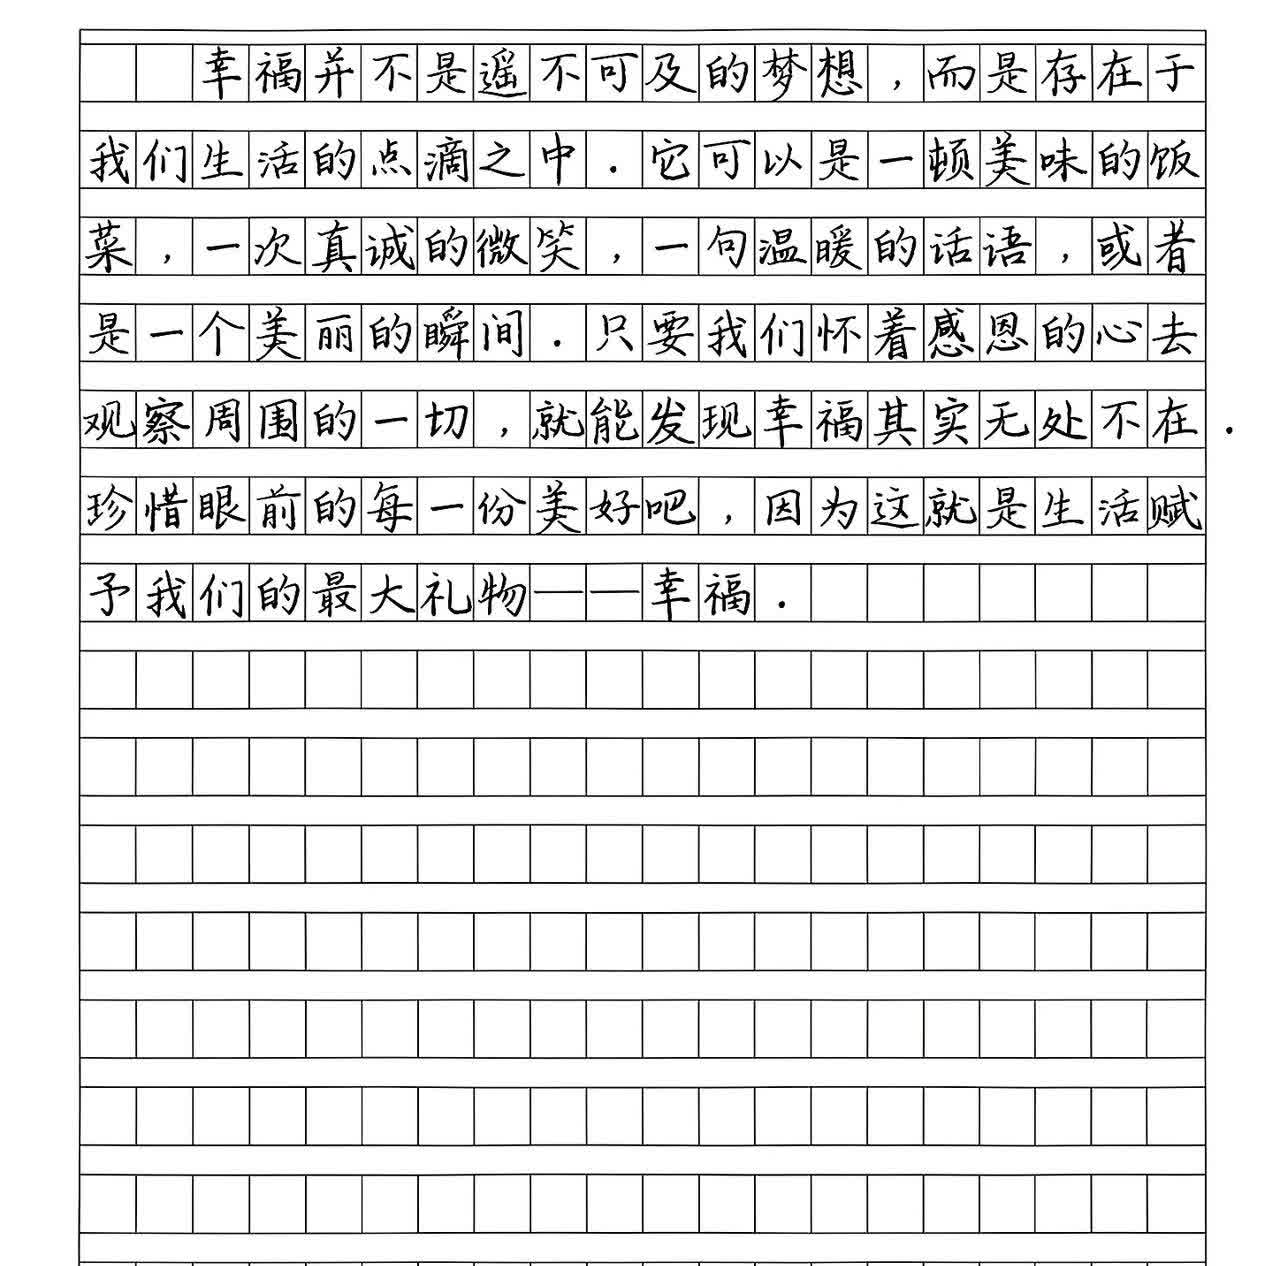 幸福并不是遥不可及的梦想，而是存在于
我们生活的点滴之中．它可以是一顿美味的饭
菜，一次真诚的微笑，一句温暖的话语，或者
是一个美丽的瞬间．只要我们怀着感恩的心去
观察周围的一切，就能发现幸福其实无处不在．
珍惜眼前的每一份美好吧，因为这就是生活赋
予我们的最大礼物——幸福．